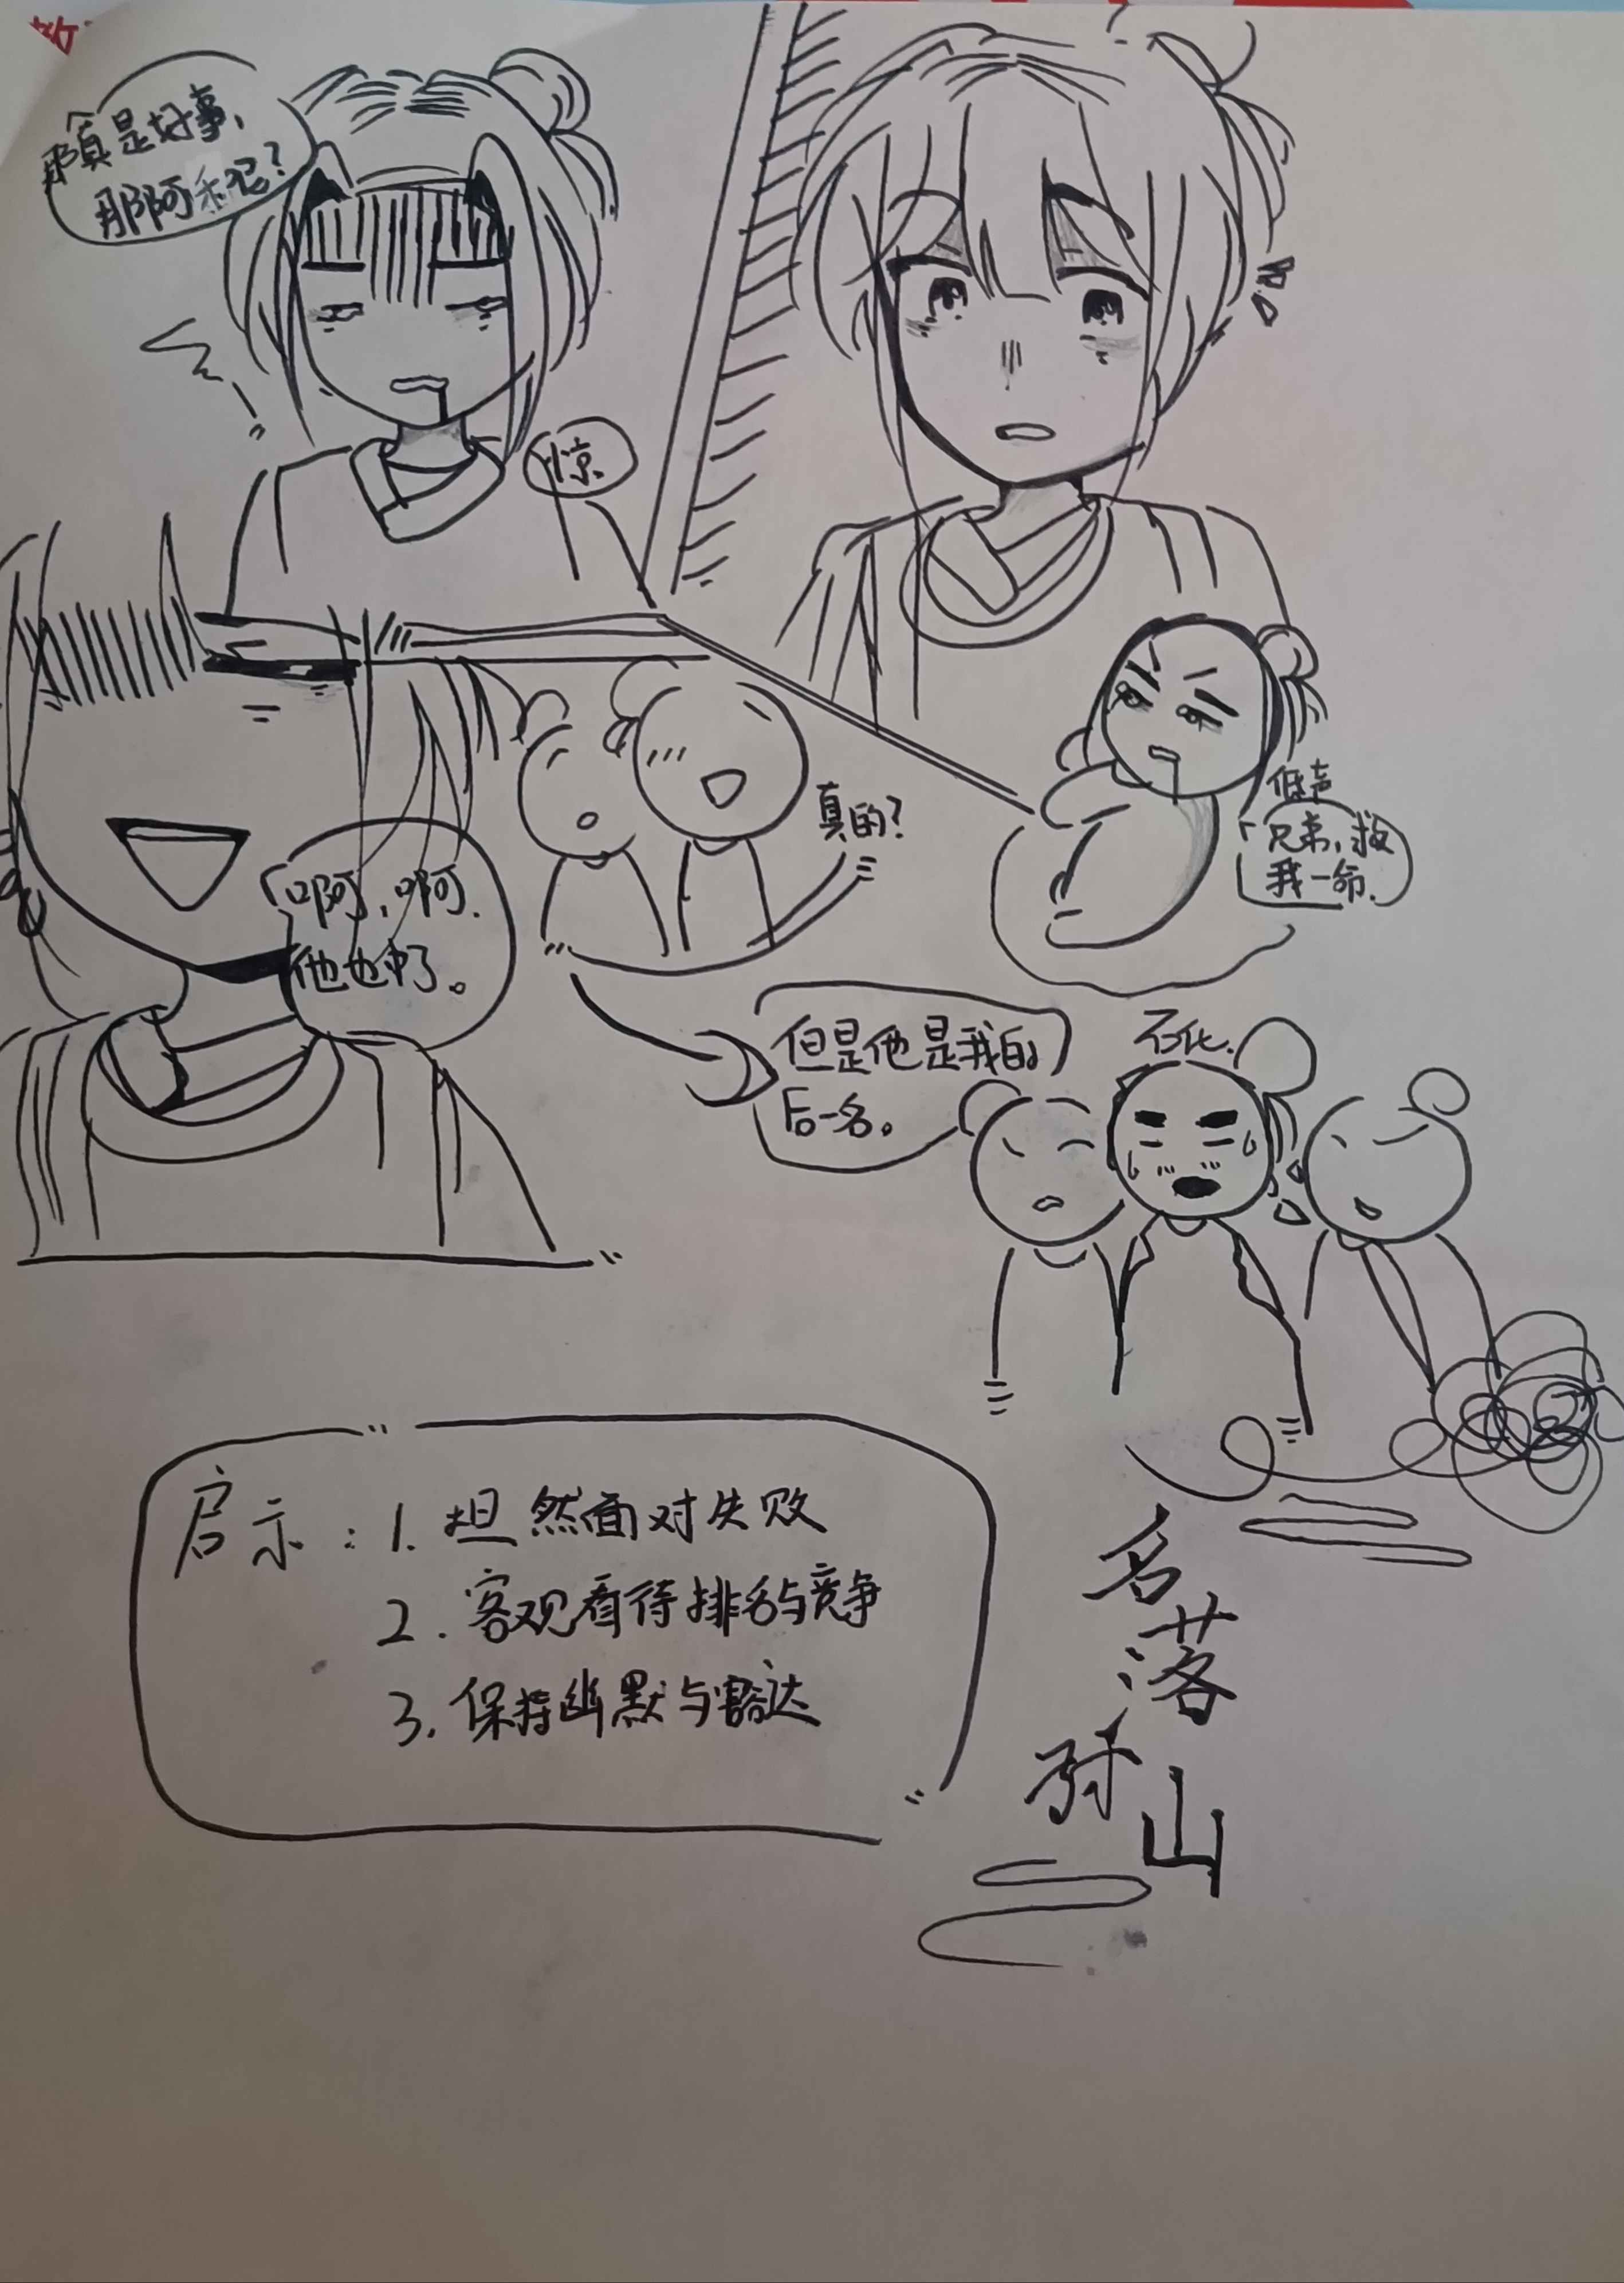 那真是好事,
那阿禾呢?
惊
低声
兄弟,救
我一命.
真的?
啊,啊.
他也中了。
但是他是我的
后一名。
石化.
启示:1.坦然面对失败
2.客观看待排名与竞争
3.保持幽默与豁达
名
落
孙
山